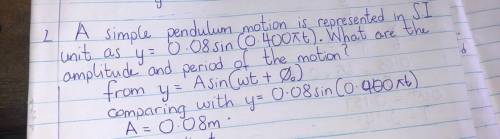 2 A simple pendulum motion is represented in SI
unit as y= 0.08sin(0.400πt). What are the
amplitude and period of the motion?
from y = Asin(ωt + ∅₀)
comparing with y= 0.08sin(0.400πt)
A = 0.08m.